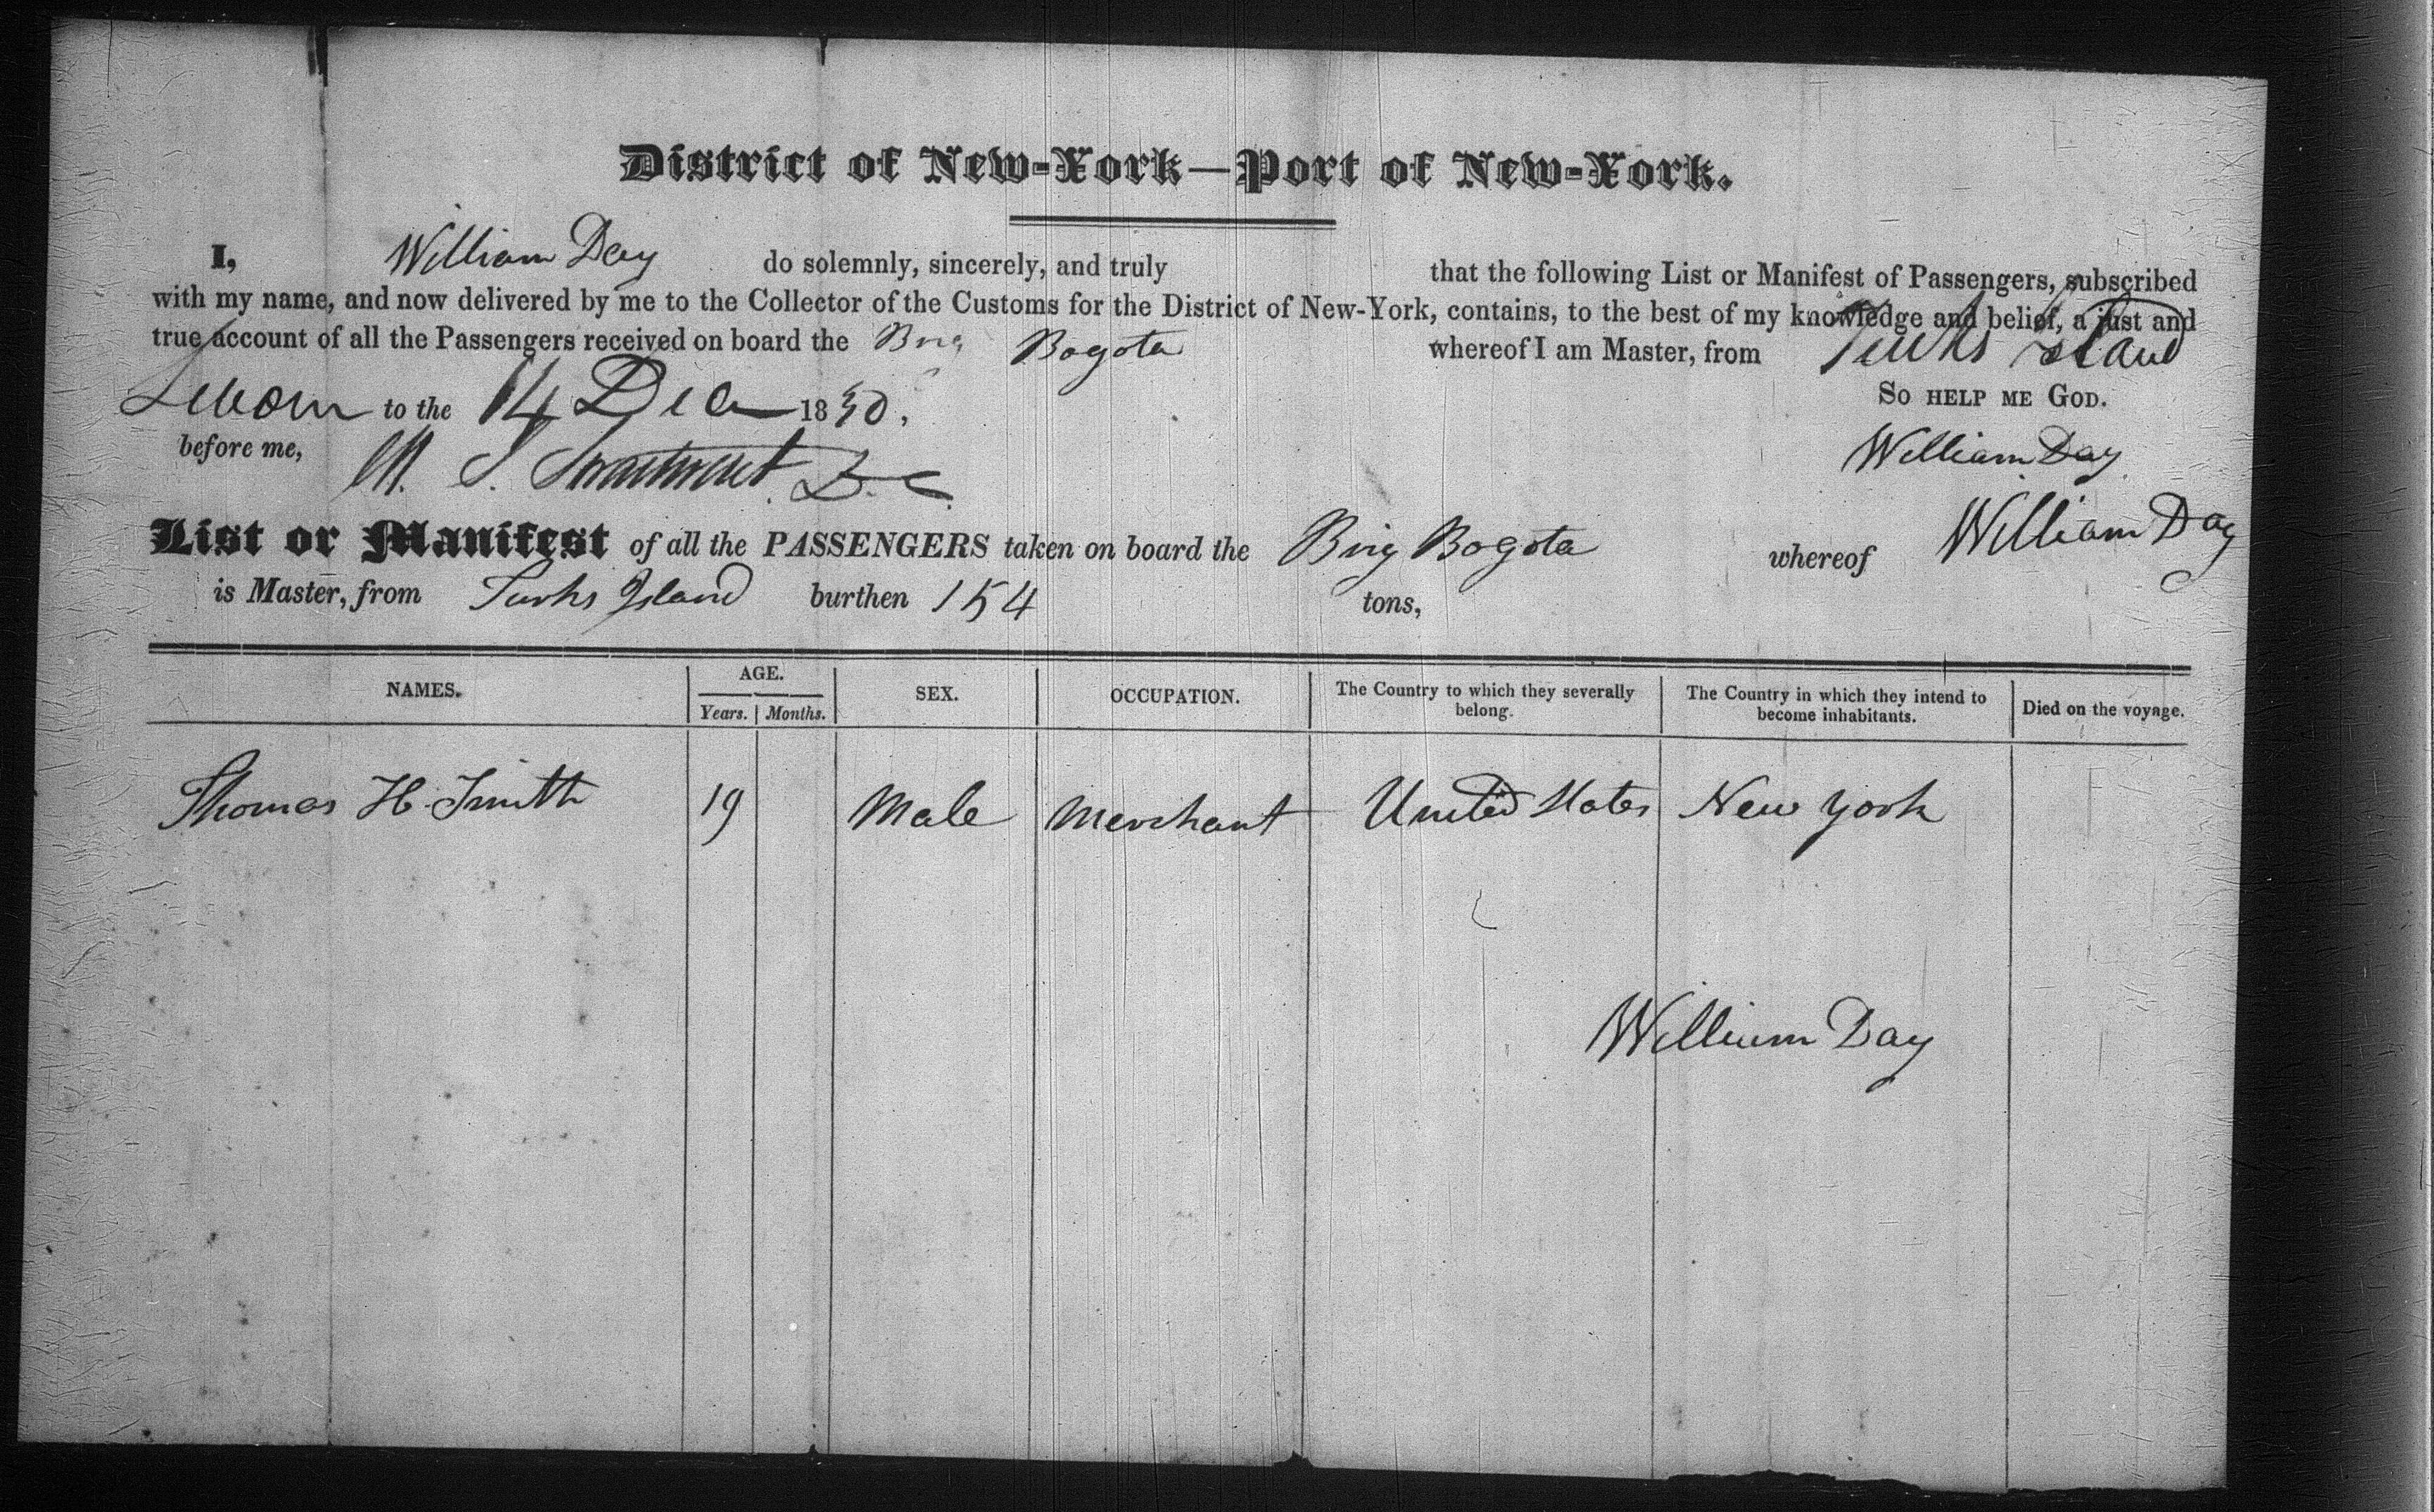 District of New-York—Port of New-York.
I, William Day do solemnly, sincerely, and truly that the following List or Manifest of Passengers, subscribed
with my name, and now delivered by me to the Collector of the Customs for the District of New-York, contains, to the best of my knowledge and belief, a just and
true account of all the Passengers received on board the Brig Bogota whereof I am Master, from Turks Island
Sworn to the 14 Dec 1830. So help me God.
before me, M. S. Swartwout D.C. William Day
List or Manifest of all the PASSENGERS taken on board the Brig Bogota whereof William Day
is Master, from Turks Island burthen 154 tons,
NAMES. AGE. SEX. OCCUPATION. The Country to which they severally belong. The Country in which they intend to become inhabitants. Died on the voyage.
Years. Months.
Thomas H. Smith 19 Male Merchant United States New York
William Day